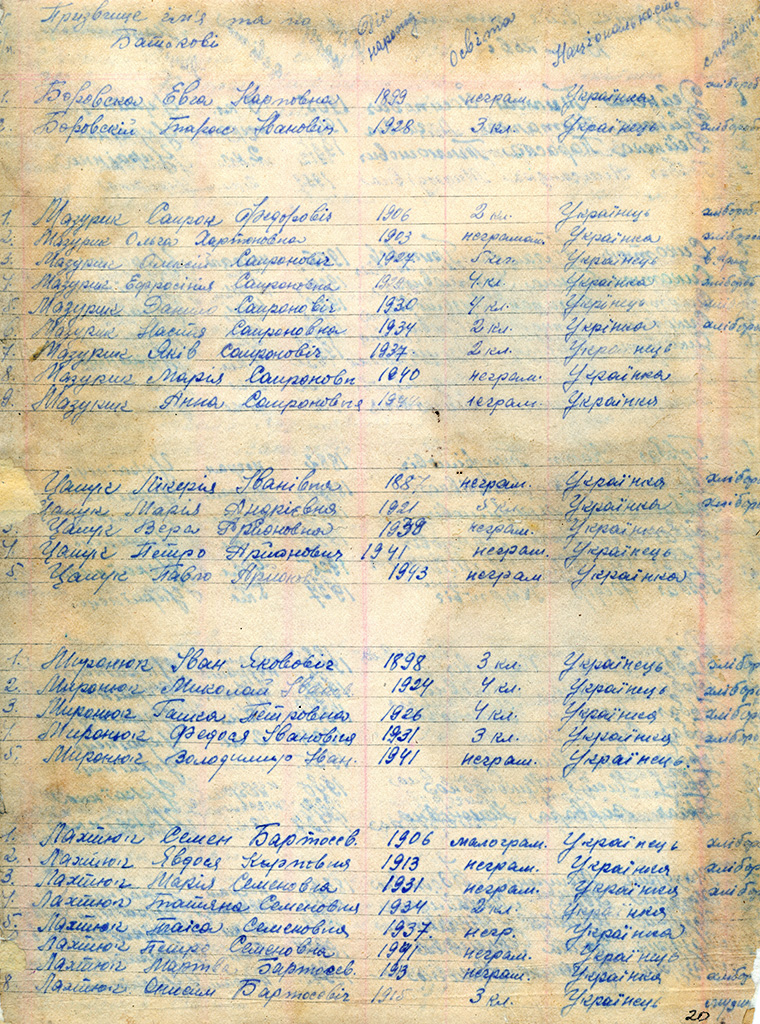 Призвище ім'я та по Рік Освіта Національность
Батькові народж
1. Боровска Евга Карповна 1899 неграм. Українка хлібороб
2. Боровскій Тарас Івановіч 1928 3 кл. Українець хлібороб
1. Мазурик Сапрон Федоровіч 1906 2 кл. Українець хлібороб.
2. Мазурик Ольга Харитоновна 1903 неграмот. Українка хлібороб
3. Мазурик Олексій Сапронович 1927 Українець
4. Мазурик Ефросінія Сапроновна 4 кл. Українка хлібороб
5. Мазурик Данило Сапроновіч 1930 4 кл. Укрїнець
6. Мазурик Настя Сапроновна 1934 2 кл. Укрїнка хлібороб
7. Мазурик Янів Сапроновіч 1937 2 кл. Українець
8. Мазурик Марія Сапроновн 1940 неграм. Українка
9. Мазурик Анна Сапроновна неграм. Українка
Цапук Лікерія Іванівна 1887 неграм. Українка хлібороб
Цапук Марія Андрієвна 1921 Українка хлібороб
3. Цапук Вера 1939 неграм. Українка
4. Цапук Петро Арионович 1941 неграм. Українець
5 Цапук Павло 1943 неграм Українка
1. Миронюк Іван Яковович 1898 3 кл. Українець хлібор
2. Миронюк Миколай Іванов 1924 4 кл. Українець хлібор
3. Миронюк Гашка Петровна 1926 4 кл. Українка хлібор
4. Миронюк Федося Івановня 1931 3 кл. Українка хлібор
5. Миронюк Володимир Іван. 1941 неграм. Українець
1. Лахтюк Семен Бартосев. 1906 малограм. Українець хлібор
2. Лахтюк Явдося Карповня 1913 неграм. Українка хлібор
3. Лахтюк Марія Семеновна 1931 неграм. Українка хлібор
4. Лахтюк Татияна Семеновня 1934 2 кл. Українка
5. Лахтюк Таіса Семеновня 1937 негр. Українка
Лахтюк Петро Семеновна 1941 неграм. Українець
Лахтюк Бартосев. неграм. Українка хлібор
8. Лахтюк Онисим Бартосевіч 3 кл. Українець
20